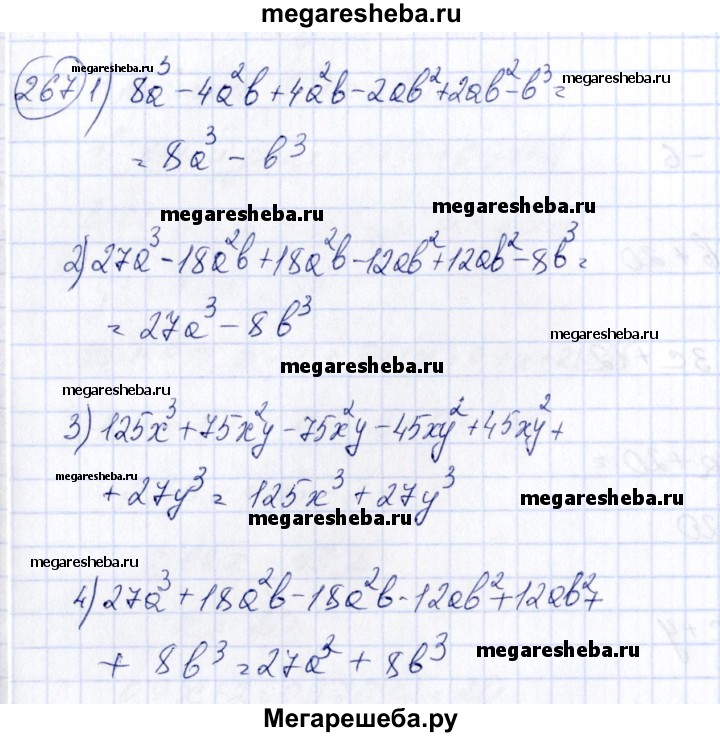 megaresheba.ru
267 1) 8a³ - 4a²b + 4a²b - 2ab² + 2ab² - b³ =
megaresheba.ru
megaresheba.ru
= 8a³ - b³
megaresheba.ru
megaresheba.ru
2) 27a³ - 18a²b + 18a²b - 12ab² + 12ab² - 8b³ =
= 27a³ - 8b³
megaresheba.ru
megaresheba.ru
megaresheba.ru
3) 125x³ + 75x²y - 75x²y - 45xy² + 45xy² +
megaresheba.ru
+ 27y³ = 125x³ + 27y³
megaresheba.ru
megaresheba.ru
megaresheba.ru
4) 27a³ + 18a²b - 18a²b - 12ab² + 12ab² +
+ 8b³ = 27a³ + 8b³
megaresheba.ru
Мегарешеба.ру